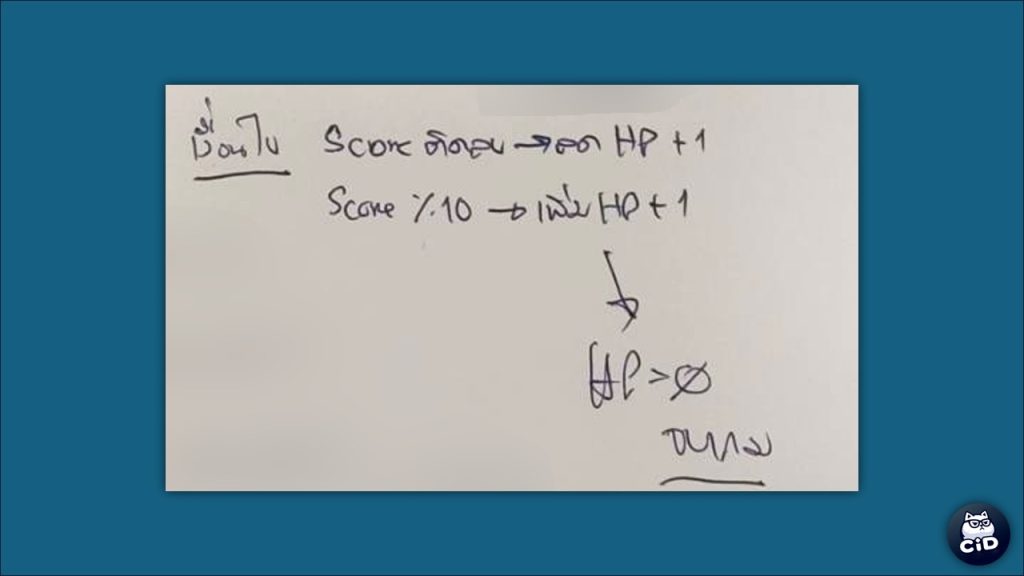 เงื่อนไข Score ติดลบ → ลด HP + 1
Score % 10 → เพิ่ม HP + 1
HP > 0
จบเกม
CiD